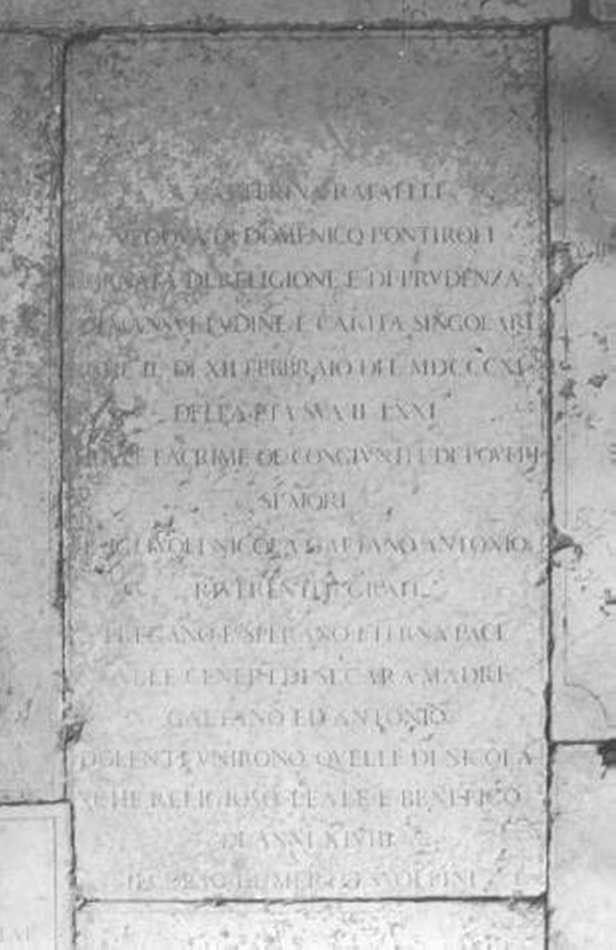 CATTERINA RAFAELLI
VEDOVA DI DOMENICO PONTIROLI
ORNATA DI RELIGIONE E DI PRVDENZA
DI MANSVETUDINE E CARITA SINGOLARE
IL DI XII FEBBRAIO DEL MDCCCXI
DELLA ETA SVA II LXXI
LACRIME DE CONGIVNTI E DE POVERI
SI MORI
FIGLIVOLI NICOLA GAETANO ANTONIO
RIVERENTI E GRATI
PREGANO E SPERANO ETERNA PACE
ALLE CENERI DI SI CARA MADRE
GAETANO ED ANTONIO
DOLENTI VNIRONO QVELLE DI NICOLA
CHE RELIGIOSO LEALE E BENEFICO
DI ANNI XLVIII